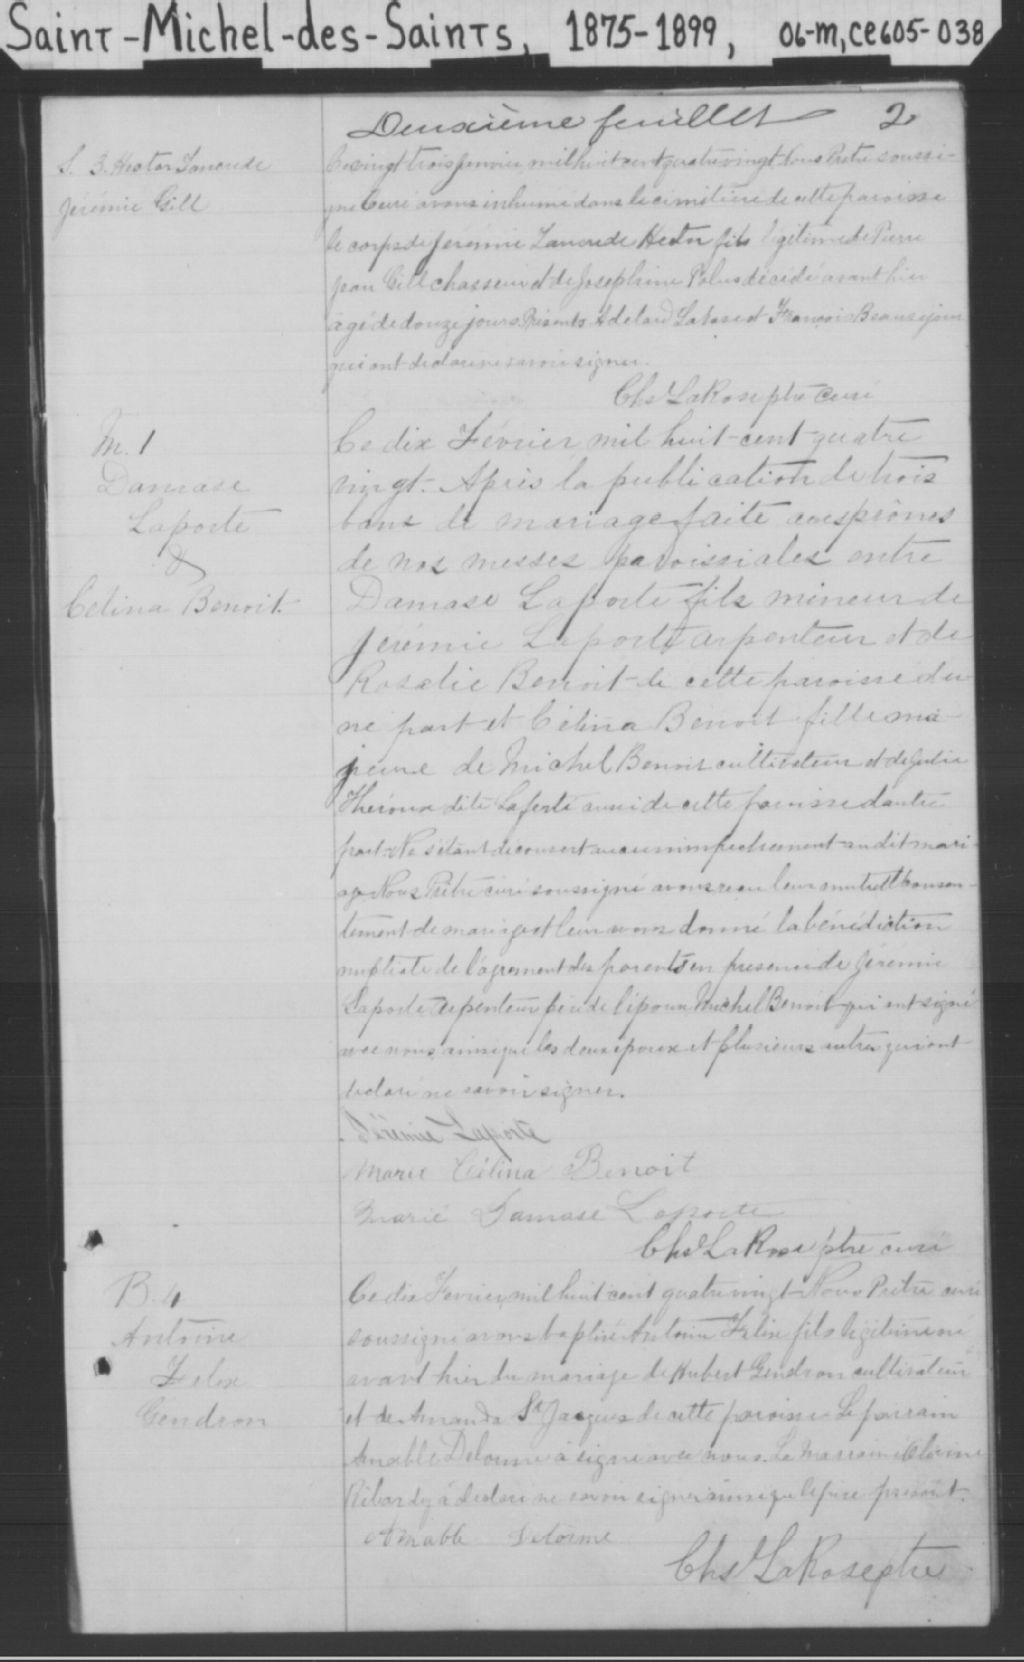 Saint-Michel-des-Saints, 1875-1899, 06-M, CE605-038
Deuxième feuillet 2
S. 3. Hector
Jérémie Gill
Ce vingt trois janvier mil huit cent quatre vingt Nous Prêtre soussi-
gné Curé avons inhumé dans le cimetière de cette paroisse
le corps de Jérémie Hector fils légitime de Pierre
Jean Gill chasseur et de Josephine décédé avant hier
âgé de douze jours. Présents Adelard Larose et François Beausejour
qui ont declaré ne savoir signer.
Chs LaRose ptre curé
M. 1
Damase
Laporte
&
Celina Benoit.
Ce dix Février mil huit-cent-quatre
vingt. Après la publication de trois
bans de mariage faite aux prônes
de nos messes paroissiales entre
Damase Laporte fils mineur de
Jérémie Laporte arpenteur et de
Rosalie Benoit de cette paroisse d'u-
ne part et Célina Benoit fille ma-
jeure de Michel Benoit cultivateur et de Julie
Théroux dite Laferté aussi de cette paroisse d'autre
part. Ne s'étant découvert aucun empêchement au dit mari-
age Nous Prêtre curé soussigné avons reçu leur mutuel consen-
tement de mariage et leur avons donné la bénédiction
nuptiale de l'agrement des parents en presence de Jérémie
Laporte arpenteur père de l'époux Michel Benoit qui ont signé
avec nous ainsi que les deux époux et plusieurs autres qui ont
declaré ne savoir signer.
Jérémie Laporte
Marie Célina Benoit
Marie Damase Laporte
Chs LaRose ptre curé
B. 4
Antoine
Felix
Gendron
Ce dix Fevrier, mil huit cent quatre vingt Nous Prêtre curé
soussigné avons baptisé Antoine Felix fils légitime né
avant hier du mariage de Hubert Gendron cultivateur
et de Amanda St Jacques de cette paroisse. Le parrain
Amable Delorme a signé avec nous. La marraine
a declaré ne savoir signer ainsi que le père présent.
Amable Delorme
Chs LaRose ptre